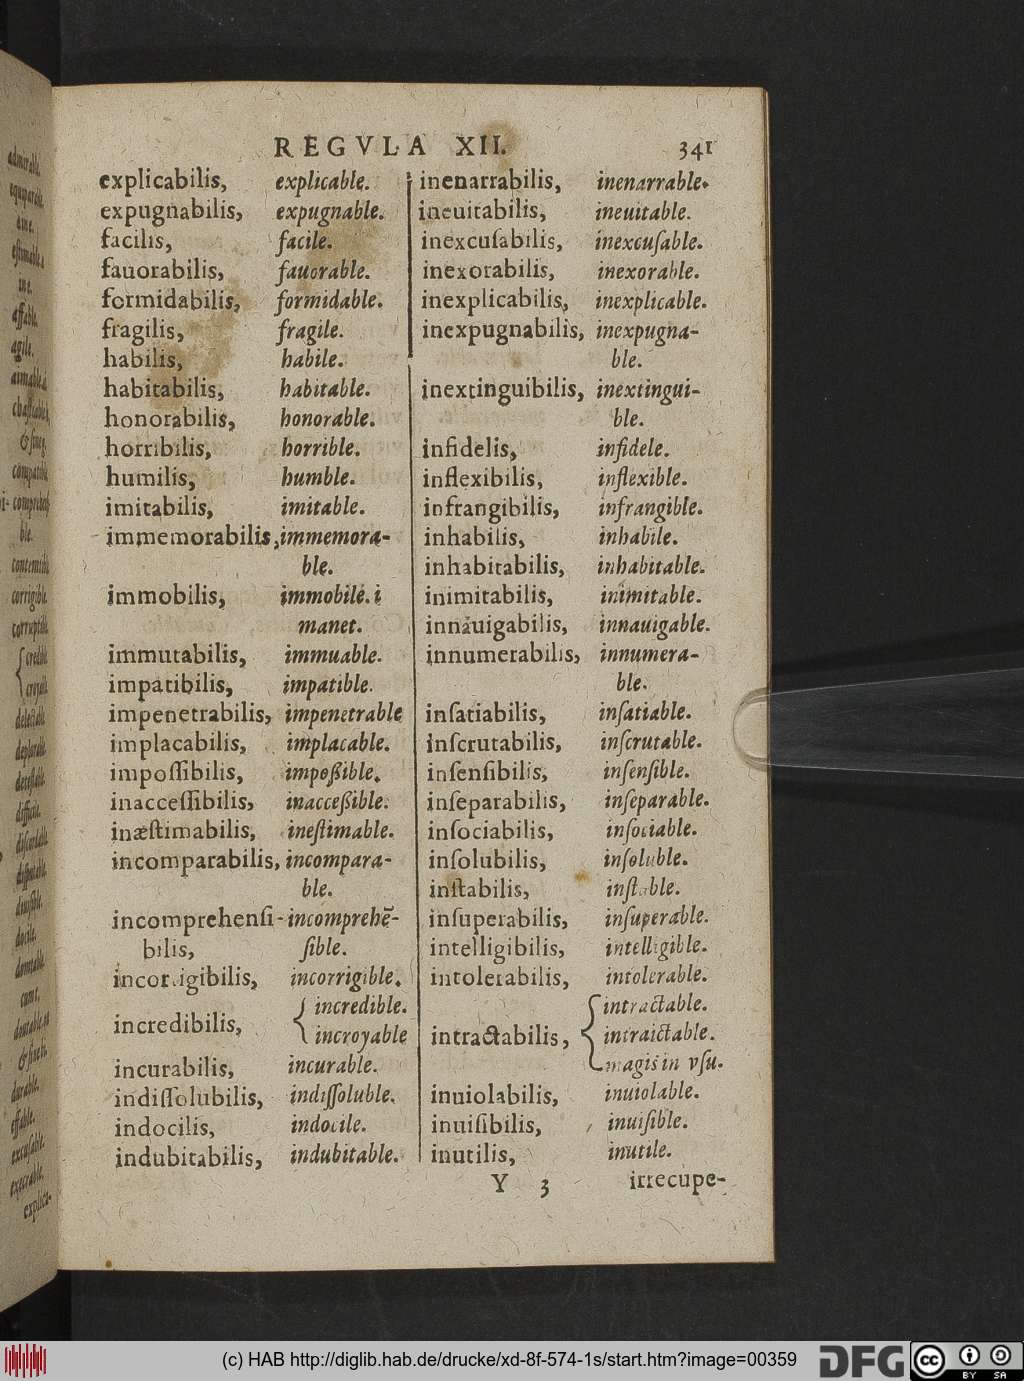 REGVLA XII. 341
explicabilis, explicable.
expugnabilis, expugnable.
facilis, facile.
fauorabilis, fauorable.
formidabilis, formidable.
fragilis, fragile.
habilis, habile.
habitabilis, habitable.
honorabilis, honorable.
horribilis, horrible.
humilis, humble.
imitabilis, imitable.
immemorabilis, immemora-
ble.
immobilis, immobile. i
manet.
immutabilis, immuable.
impatibilis, impatible.
impenetrabilis, impenetrable
implacabilis, implacable.
impoſſibilis, impoßible.
inacceſſibilis, inacceßible.
inæſtimabilis, ineſtimable.
incomparabilis, incompara-
ble.
incomprehenſi- incomprehẽ-
bilis, ſible.
incorrigibilis, incorrigible.
incredible.
incredibilis,
incroyable
incurabilis, incurable.
indiſſolubilis, indiſſoluble.
indocilis, indocile.
indubitabilis, indubitable.
inenarrabilis, inenarrable.
ineuitabilis, ineuitable.
inexcuſabilis, inexcuſable.
inexorabilis, inexorable.
inexplicabilis, inexplicable.
inexpugnabilis, inexpugna-
ble.
inextinguibilis, inextingui-
ble.
infidelis, infidele.
inflexibilis, inflexible.
infrangibilis, infrangible.
inhabilis, inhabile.
inhabitabilis, inhabitable.
inimitabilis, inimitable.
innauigabilis, innauigable.
innumerabilis, innumera-
ble.
inſatiabilis, inſatiable.
inſcrutabilis, inſcrutable.
inſenſibilis, inſenſible.
inſeparabilis, inſeparable.
inſociabilis, inſociable.
inſolubilis, inſoluble.
inſtabilis, inſtable.
inſuperabilis, inſuperable.
intelligibilis, intelligible.
intolerabilis, intolerable.
intractable.
intractabilis, intraictable.
magis in vſu.
inuiolabilis, inuiolable.
inuiſibilis, inuiſible.
inutilis, inutile.
Y 3 irrecupe-
admirable.
affable.
agile.
&
ble.
corrigible.
credible
croyable
difficile.
docile.
durable.
effable.
excuſable.
execrable.
explica-
(c) HAB http://diglib.hab.de/drucke/xd-8f-574-1s/start.htm?image=00359
DFG
cc BY SA